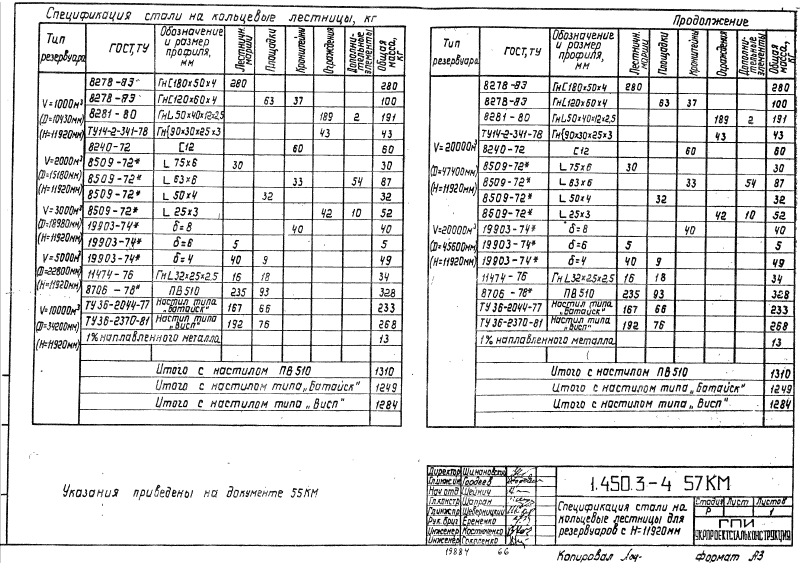 Спецификация стали на кольцевые лестницы, кг
Тип резервуара | ГОСТ, ТУ | Обозначение и размер профиля, мм | Лестничн. марши | Площадки | Кронштейны | Ограждения | Дополнительные элементы | Общая масса, кг
8278-83 ГнС180х50х4 280 280
8278-83 ГнС120х60х4 63 37 100
8281-80 ГнL50х40х12х2,5 189 2 191
ТУ14-2-341-78 Гн[90х30х25х3 43 43
8240-72 С12 60 60
8509-72* L 75х6 30 30
8509-72* L 63х6 33 54 87
8509-72* L 50х4 32 32
8509-72* L 25х3 42 10 52
19903-74* δ=8 40 40
19903-74* δ=6 5 5
19903-74* δ=4 40 9 49
11474-76 ГнL32х25х2,5 16 18 34
8706-78* ПВ510 235 93 328
ТУ36-2044-77 Настил типа „Батайск" 167 66 233
ТУ36-2370-81 Настил типа „Висп" 192 76 268
1% наплавленного металла 13
Итого с настилом ПВ510 1310
Итого с настилом типа „Батайск" 1249
Итого с настилом типа „Висп" 1284
V=1000м³
(D=10430мм)
(H=11920мм)
V=2000м³
(D=15180мм)
(H=11920мм)
V=3000м³
(D=18980мм)
(H=11920мм)
V=5000м³
(D=22800мм)
(H=11920мм)
V=10000м³
(D=34200мм)
(H=11920мм)
Продолжение
Тип резервуара | ГОСТ, ТУ | Обозначение и размер профиля, мм | Лестничн. марши | Площадки | Кронштейны | Ограждения | Дополнительные элементы | Общая масса, кг
8278-83 ГнС180х50х4 280 280
8278-83 ГнL120х60х4 63 37 100
8281-80 ГнL50х40х12х2,5 189 2 191
ТУ14-2-341-78 Гн[90х30х25х3 43 43
8240-72 С12 60 60
8509-72* L 75х6 30 30
8509-72* L 63х6 33 54 87
8509-72* L 50х4 32 32
8509-72* L 25х3 42 10 52
19903-74* δ=8 40 40
19903-74* δ=6 5 5
19903-74* δ=4 40 9 49
11474-76 ГнL32х25х2,5 16 18 34
8706-78* ПВ510 235 93 328
ТУ36-2044-77 Настил типа „Батайск" 167 66 233
ТУ36-2370-81 Настил типа „Висп" 192 76 268
1% наплавленного металла 13
Итого с настилом ПВ510 1310
Итого с настилом типа „Батайск" 1249
Итого с настилом типа „Висп" 1284
V=20000м³
(D=47400мм)
(H=11920мм)
V=20000м³
(D=45600мм)
(H=11920мм)
Указания приведены на документе 55КМ
Директор Шимановский
Гл.инж.ин Гордеев
Нач.отд. Шейнич
Гл.констр. Шапран
Гл.инж.пр Шеверницкий
Рук.бриг. Еременко
Инженер Костюченко
Инженер Гоколенко
19884 66
1.450.3-4 57КМ
Спецификация стали на кольцевые лестницы для резервуаров с H=11920мм
Стадия Лист Листов
Р 1
ГПИ
УКРПРОЕКТСТАЛЬКОНСТРУКЦИЯ
Копировал
Формат А3